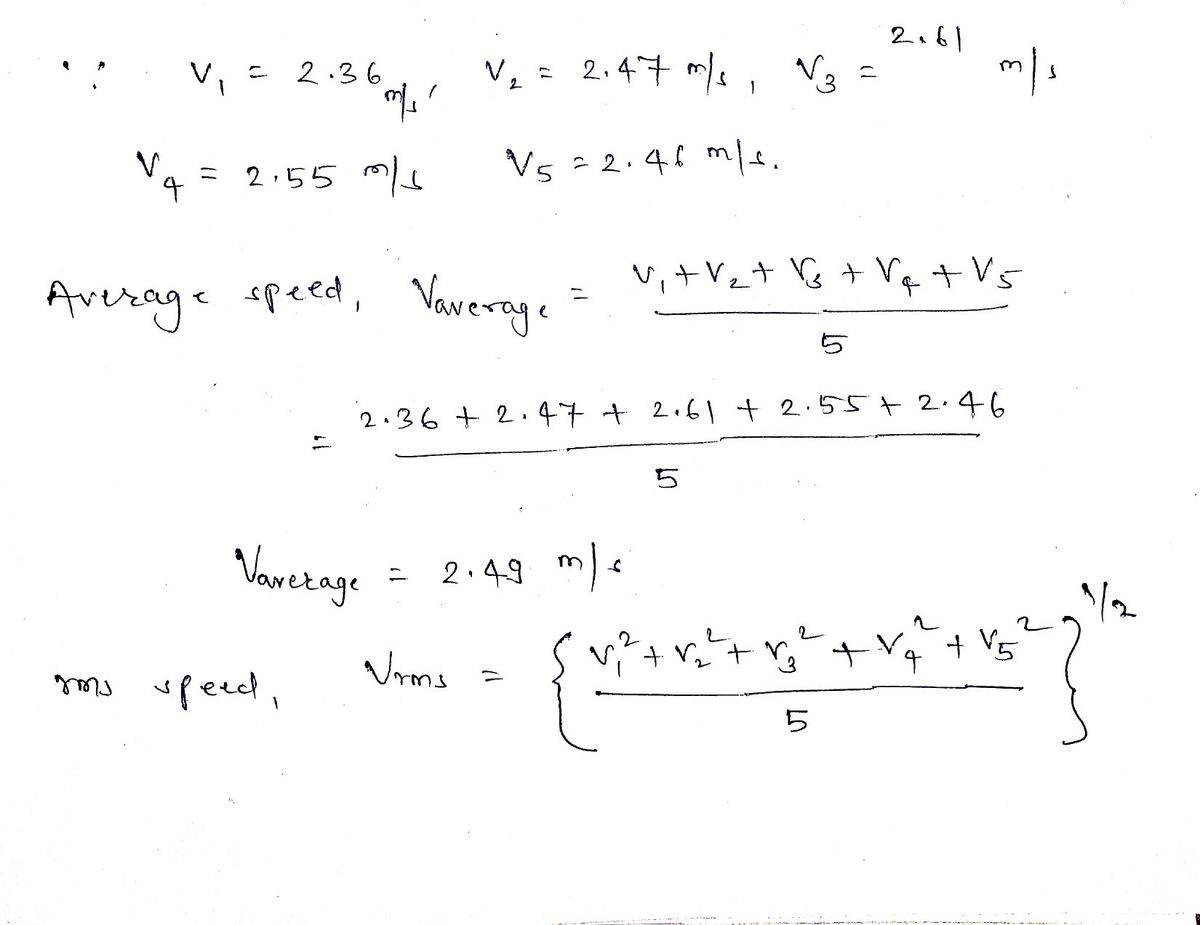 ∵ V₁ = 2.36 m/s, V₂ = 2.47 m/s, V₃ = 2.61 m/s
V₄ = 2.55 m/s V₅ = 2.46 m/s.
Average speed, Vaverage = (V₁ + V₂ + V₃ + V₄ + V₅) / 5
= (2.36 + 2.47 + 2.61 + 2.55 + 2.46) / 5
Vaverage = 2.49 m/s
rms speed, Vrms = {(V₁² + V₂² + V₃² + V₄² + V₅²) / 5}^1/2